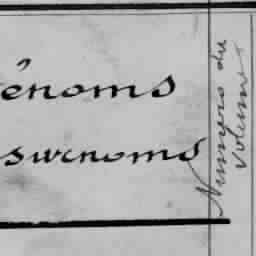 énoms
surnoms
Numéro du
Volume